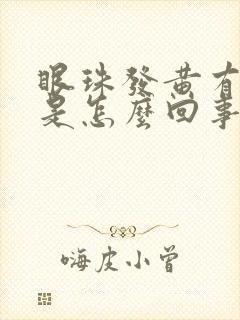 眼珠發黃有
是怎麼回事
嗨皮小曾